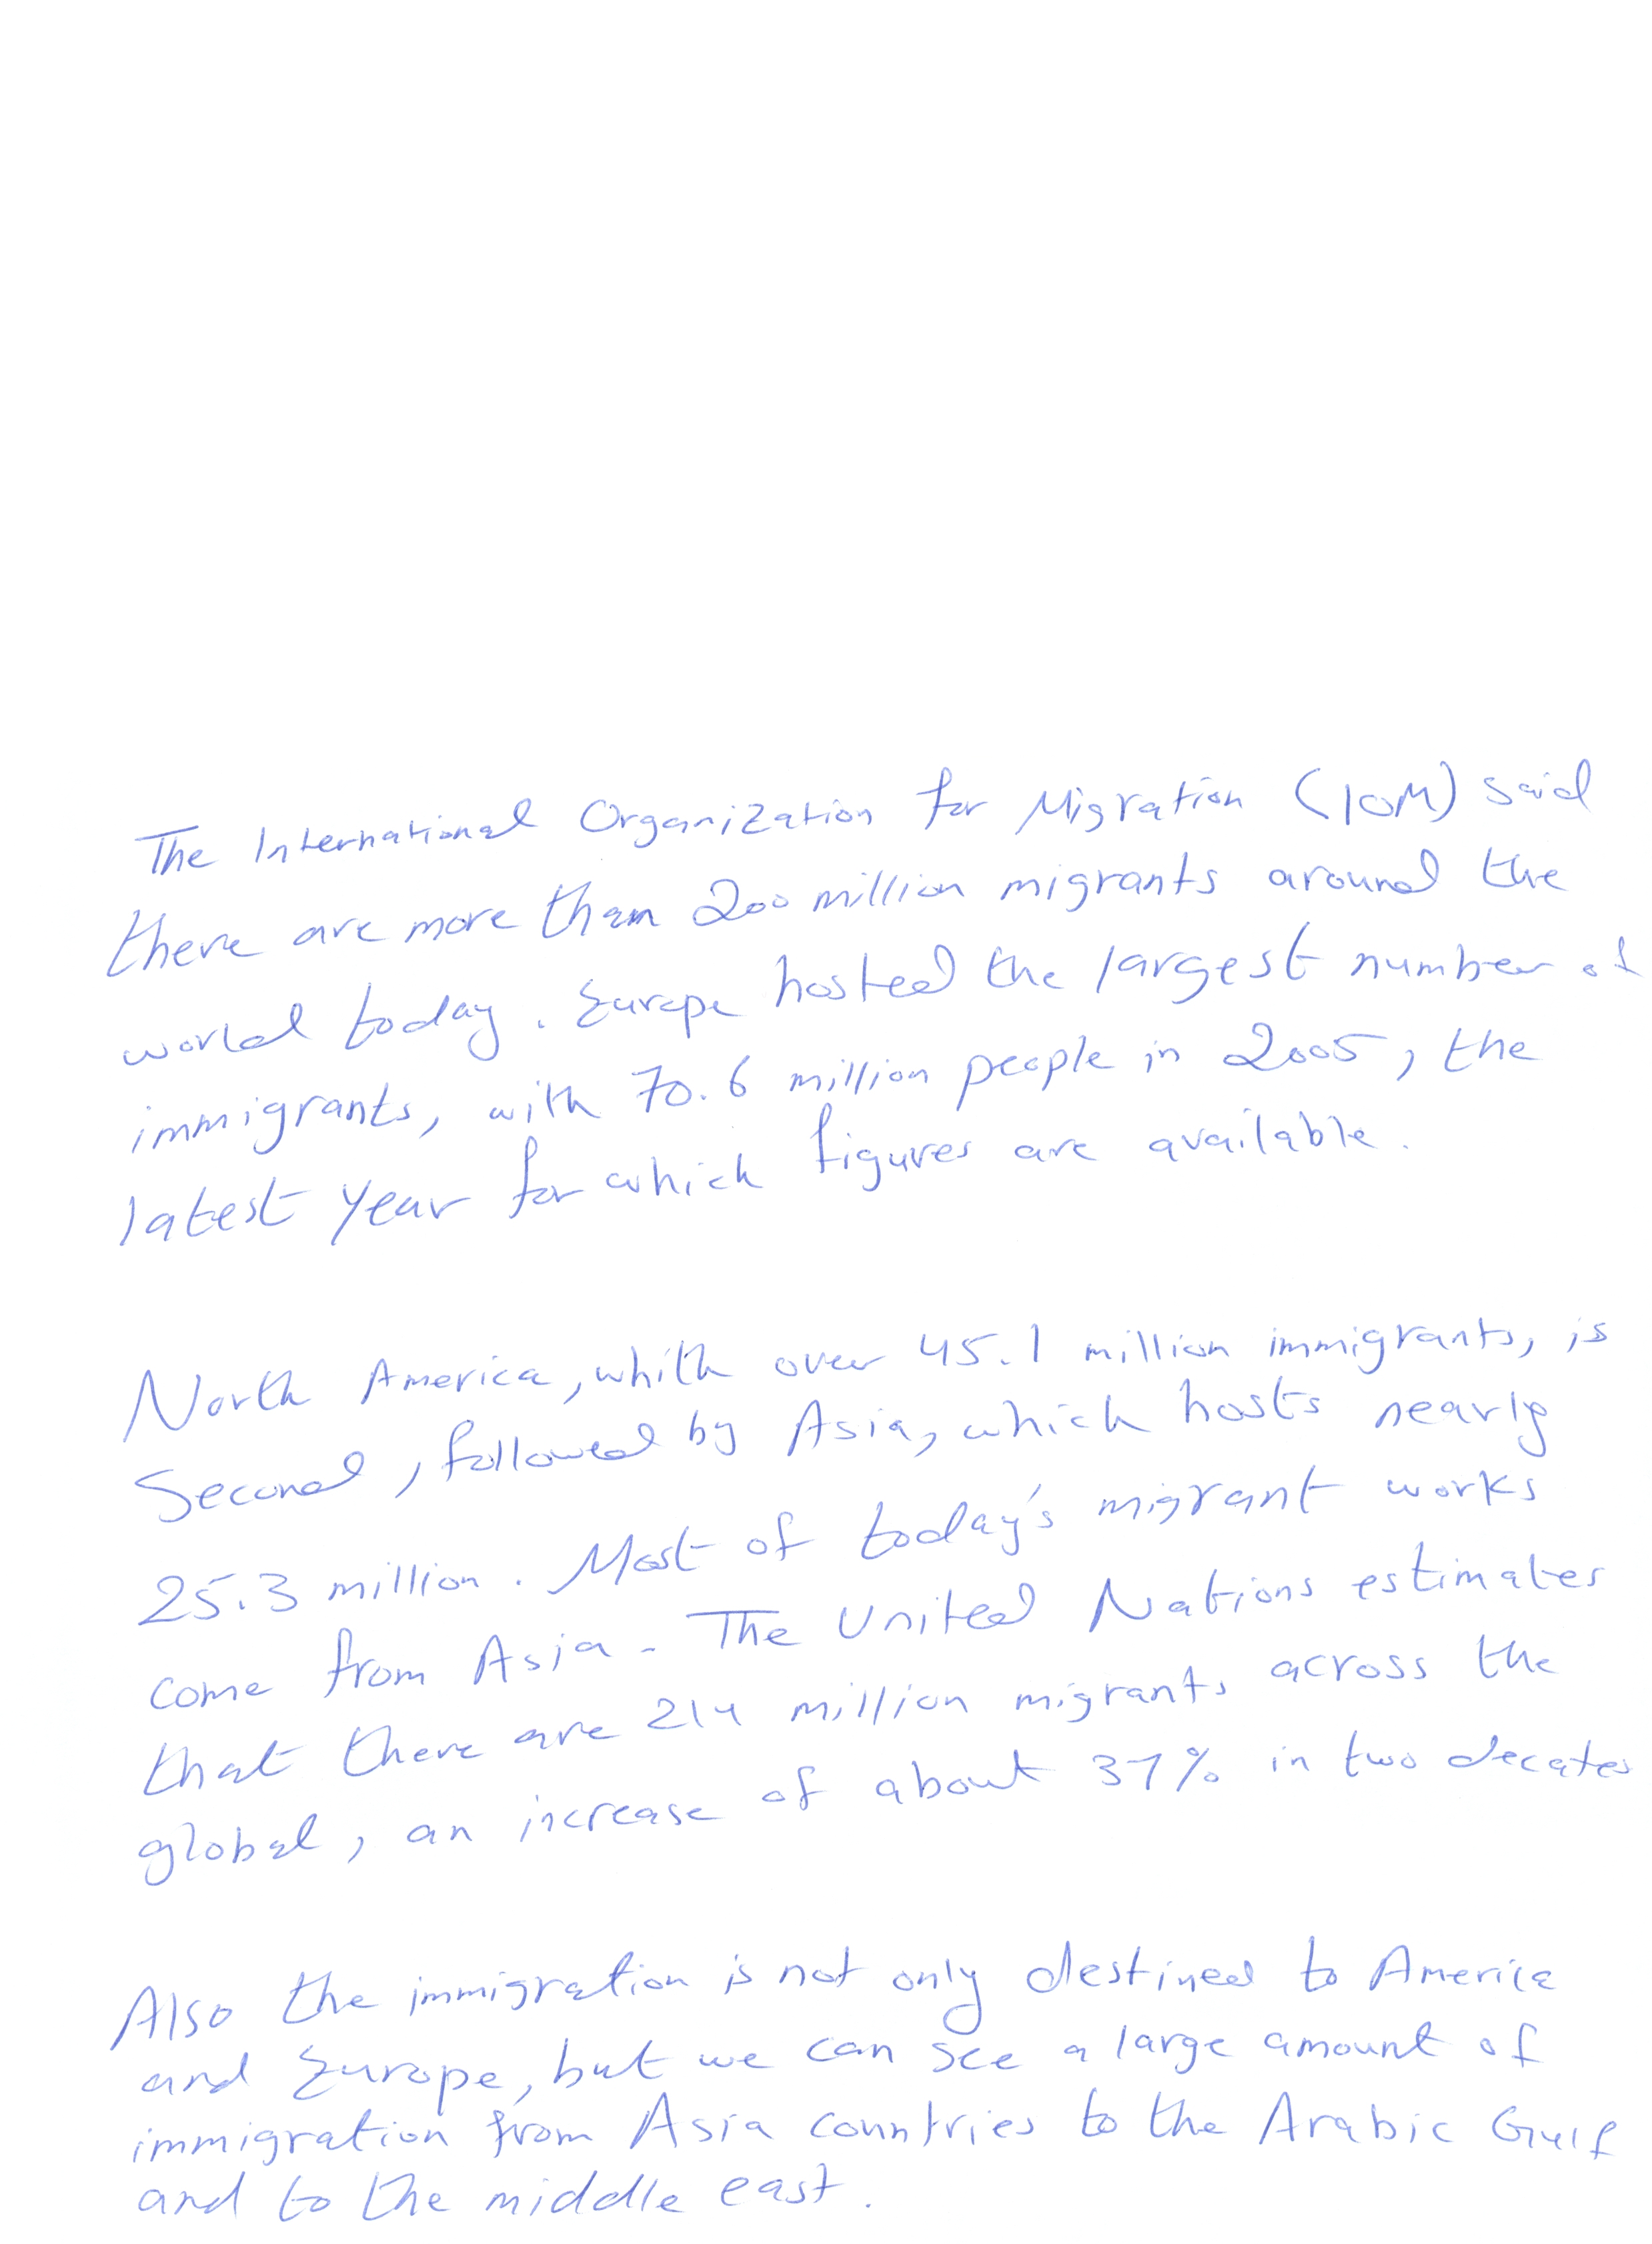 The International Organization for Migration (IOM) said
there are more than 200 million migrants around the
world today. Europe hosted the largest number of
immigrants, with 70.6 million people in 2005, the
latest year for which figures are available.
North America, whith over 45.1 million immigrants, is
Second, followed by Asia, which hosts nearly
25.3 million. Most of today's migrant works
come from Asia. The United Nations estimates
that there are 214 million migrants across the
global, an increase of about 37% in two decates
Also the immigration is not only destined to America
and Europe, but we can see a large amount of
immigration from Asia countries to the Arabic Gulf
and to the middle east.